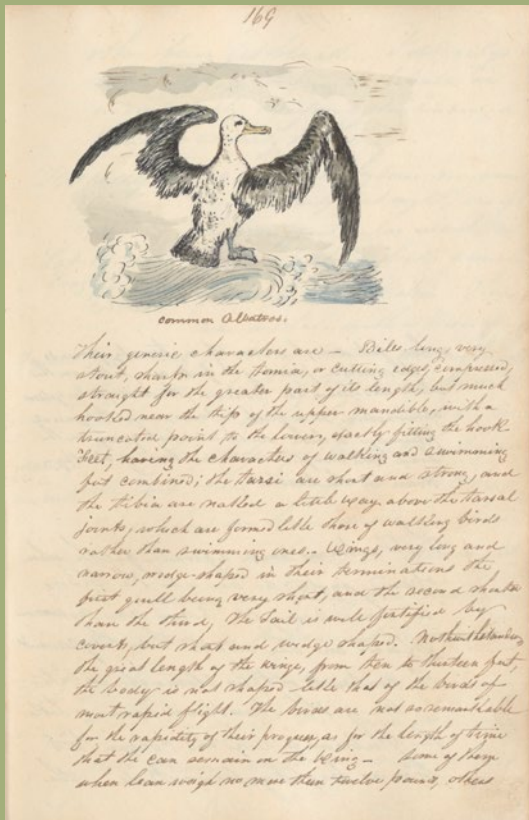 169
common Albatros.
Their generic characters are — Bills long, very
stout, sharp in the tomia, or cutting edges, compressed,
straight for the greater part of its length, but much
hooked near the thip of the upper mandible, with a
truncated point to the lower, exactly fitting the hook
Feet, having the characters of walking and swimming
feet combined; the tarsi are short and strong, and
the tibia are naked a little way above the tarsal
joints, which are formed like those of walking birds
rather than swimming ones.. Wings, very long and
narrow, wedge-shaped in their terminations the
first quill being very short, and the second shorter
than the third, The Tail is well fortified by
coverts, but short and wedge shaped. Nothwithstanding
the great length of the wings, from then to thirteen feet,
the body is not shaped like that of the birds of
most rapid flight. The birds are not so remarkable
for the rapidity of their progress, as for the length of time
that the can remain on the wing — Some of them
when lean weigh no more then twelve pounds, others